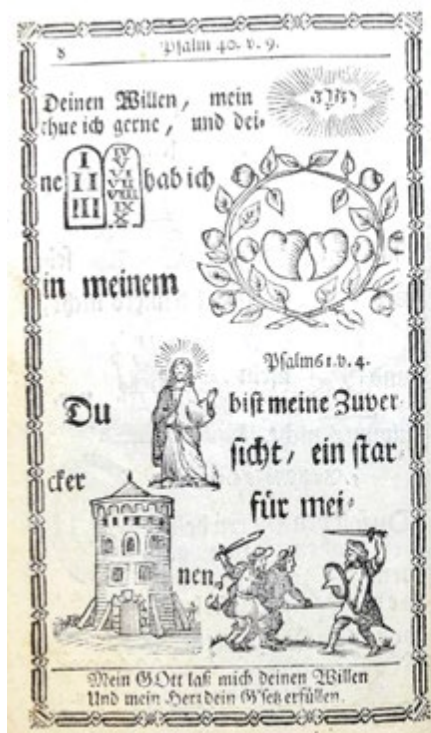 8 Psalm 40. v. 9.
Deinen Willen, mein
thue ich gerne, und dei-
ne I II III IV V VI VII VIII IX X hab ich
in meinem
Psalm 61. v. 4.
Du bist meine Zuver-
sicht, ein star-
cker für mei-
nen,
Mein GOtt laß mich deinen Willen
Und mein Hertz dein G'setz erfüllen.